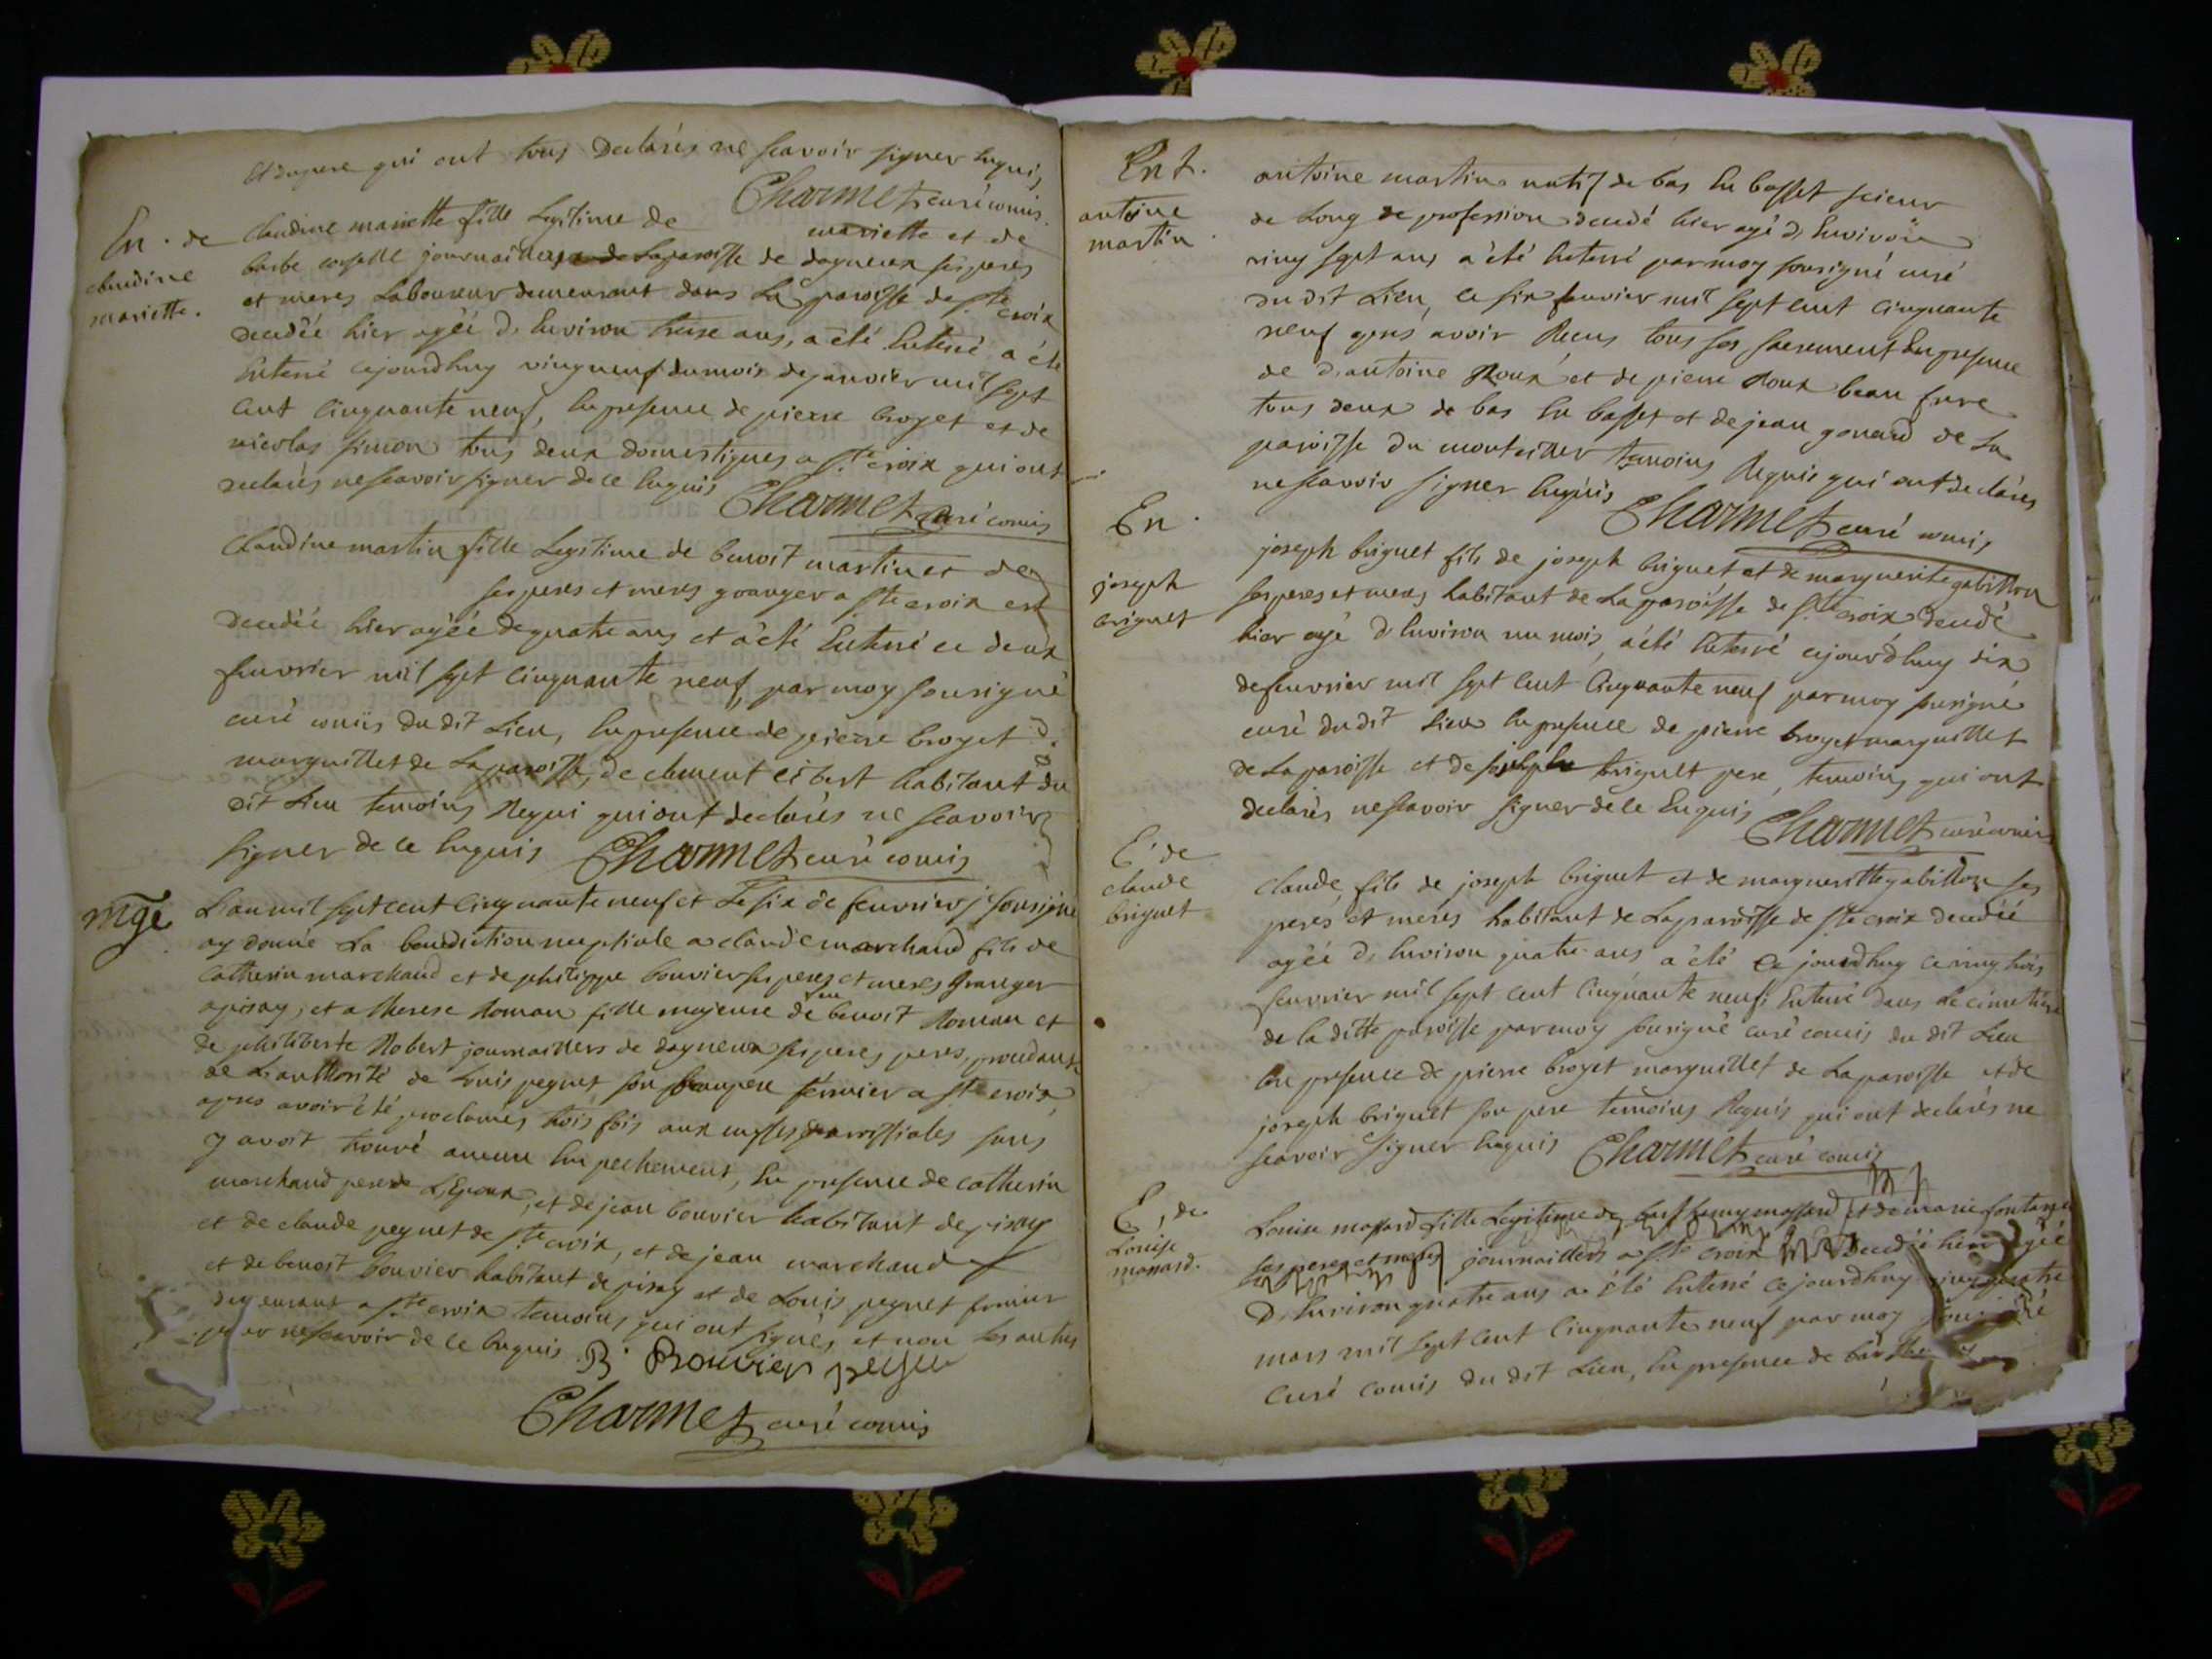 et du pere qui ont tous declarés ne scavoir signer enquis
Charmet curé comis
En. de
claudine
mariette.
claudine mariette fille legitime de mariette et de
barbe journaillers de la paroisse de dagneux ses peres
et meres laboureur demeurant dans la paroisse de ste croix
decedée hier agéé d'environ treise ans, a été enterré a été
enterré cejourdhuy vingneuf du mois de janvier mil sept
cent cinquante neuf, en presence de pierre broyet et de
nicolas simon tous deux domestiques a ste croix qui ont
declarés ne scavoir signer de ce enquis Charmet curé comis
Claudine martin fille legitime de benoit martin et de
ses peres et meres granger a ste croix est
decedéé hier agéé de quatre ans et a été enterré ce deux
feuvrier mil sept cinquante neuf par moy sousigné
curé comis du dit lieu, en presence de pierre broyet
marguillet de la paroisse, de clement libert habitant du
dit lieu temoins requi qui ont declarés ne scavoir
signer de ce enquis Charmet curé comis
mge
L'an mil sept cent cinquante neuf et le six de feuvrier j sousigné
ay donné la benediction nuptiale a claude marchand fils de
catherin marchand et de philippe bouvier ses peres et meres granger
a pisay, et a therese roman fille majeure de feu benoit roman et
de philiberte robert journaillers de dagneux ses peres peres, procedante
de l'authorité de louis peguet son beaupere fermier a ste croix,
apres avoir été proclamés trois fois aux messes paroissiales sans
y avoit trouvé aucun empechement, en presence de catherin
marchand pere de l'epoux, et de jean bouvier habitant de pisay
et de claude peguet de ste croix, et de jean marchand
et de benoit bouvier habitant de pisay et de louis peguet fermier
demeurant a ste croix temoins qui ont signés et non les autres
pour ne scavoir de ce enquis B. Bouvier peguet
Charmet curé comis
Ent.
antoine
martin
antoine martin natif de bas en basset scieur
de long de profession decedé hier agé d'environ
ving sept ans a été enterré par moy sousigné curé
du dit lieu, ce six feuvrier mil sept cent cinquante
neuf apres avoir recus tous ses sacrement en presence
de d'antoine roux et de pierre roux beau frere
tous deux de bas en basset et de jean gonard de la
paroisse du montailler temoins requis qui ont declarés
ne scavoir signer enquis Charmet curé comis
En.
joseph
briguet
joseph briguet fils de joseph briguet et de marguerite gabillon
ses peres et meres habitant de la paroisse de ste croix decedé
hier agé d'environ un mois, a été enterré cejourdhuy dix
de feuvrier mil sept cent cinquante neuf par moy sousigné
curé du dit lieu en presence de pierre broyet marguillet
de la paroisse et de joseph briguet pere, temoins qui ont
declarés ne scavoir signer de ce enquis Charmet curé comis
E. de
claude
briguet
claude fils de joseph briguet et de margueritte gabillon ses
perés et merés habitant de la paroisse de ste croix decedéé
agéé d'environ quatre ans a été ce jourdhuy ce ving trois
feuvrier mil sept cent cinquante neuf, enterré dans le cimetiere
de la ditte paroisse par moy sousigné curé comis du dit lieu
en presence de pierre broyet marguillet de la paroisse et de
joseph briguet son pere temoins requis qui ont declarés ne
scavoir signer enquis Charmet curé comis
E. de
Louise
massard.
Louise massard fille legitime de barthemy massard et de marie fontaine
ses peres et meres journaillers a ste croix decedéé hier agéé
d'environ quatre ans a été enterré cejourdhuy ving quatre
mars mil sept cent cinquante neuf par moy sousigné
curé comis du dit lieu, en presence de